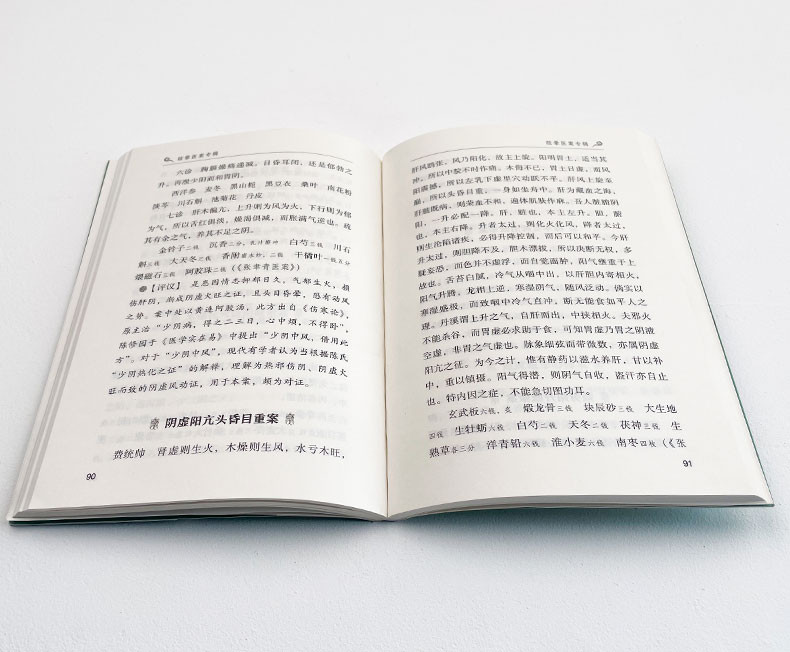 医案专辑
六诊 胸膈燥痛递减,目昏耳闭,还是郁勃之
升。再漫少阳而和胃阴。
西洋参 麦冬 黑山栀 黑豆衣 桑叶 南花粉
茯苓 川石斛 池菊花 丹皮
七诊 肝木偏亢,上升则为风为火,下行则为郁
为气,所以舌红俱淡,燥渴俱减,而胀满气逆也。疏
其有余之气,养其不足之阴。
金铃子三钱 沉香二分,乳汁磨冲 白芍三钱 川石
斛三钱 大天冬二钱 香附二钱 干橘叶一钱五分
煅磁石三钱 阿胶珠二钱(《张聿青医案》)
【评议】 是患因情志抑郁日久,气郁生火,损
伤肝阴,渐成阴虚火旺之证,且头目昏晕,恐有动风
之势。案中处以黄连阿胶汤,此方出自《伤寒论》,
原主治“少阴病,得之二三日,心中烦,不得卧”,
陈修园于《医学实在易》中提出“少阴中风,借用此
方”。对于“少阴中风”,现代有学者认为当根据陈氏
“少阴热化之证”的解释,理解为热邪伤阴、阴虚火
旺而致的阴虚风动证,用于本案,颇为对证。
阴虚阳亢头昏目重案
费统帅 肾虚则生火,木燥则生风,水亏木旺,
90
医案专辑
肝风鸱张,风乃阳化,故主上旋。阳明胃土,适当其
冲,所以中脘不时作痛。木侮不已,胃土日虚,而风
阳震撼,所以左乳下虚里穴动跃不平。肝风上旋至
巅,所以头昏目重,一身如坐舟中。肝为藏血之海,
肝脏既病,则荣血不和,遍体肌肤作麻。吾人脏腑阴
阳,一升必配一降。肝,脏也,本主左升。胆,腑
也,本主右降。升者太过,则化火化风,降者太过,
则生沧陷诸疾,必得升降控制,而后可以和平。今肝
升太过,则胆降不及,胆木漂拔,所以决断无权,多
疑妄恐,而色并不虚浮,而自觉面肿,阳气壅重于上
故也。舌苔白腻,冷气从咽中出,以肝胆内寄相火,
阳气升腾,龙相上逆,寒湿阴气,随风泛动。倘实以
寒湿盛极,而致咽中冷气直冲,断无能食如平人之
理。丹溪谓上升之气,自肝而出,中挟相火。夫邪火
不能杀谷,而胃虚必求助于食,可知胃虚乃胃之阴液
空虚,非胃之气虚也。脉象细弦而带微数,亦属阴虚
阳亢之征。为今之计,惟有静药以滋水养肝,甘以补
中,重以镇摄。阳气得潜,则阴气自收,盗汗亦自止
也。特内因之症,不能急切图功耳。
玄武板六钱,炙 煅龙骨三钱 块辰砂三钱 大生地
四钱 生牡蛎六钱 白芍二钱 天冬二钱 茯神三钱 生
熟草各三分 洋青铅六钱 淮小麦六钱 南枣四枚(《张
91